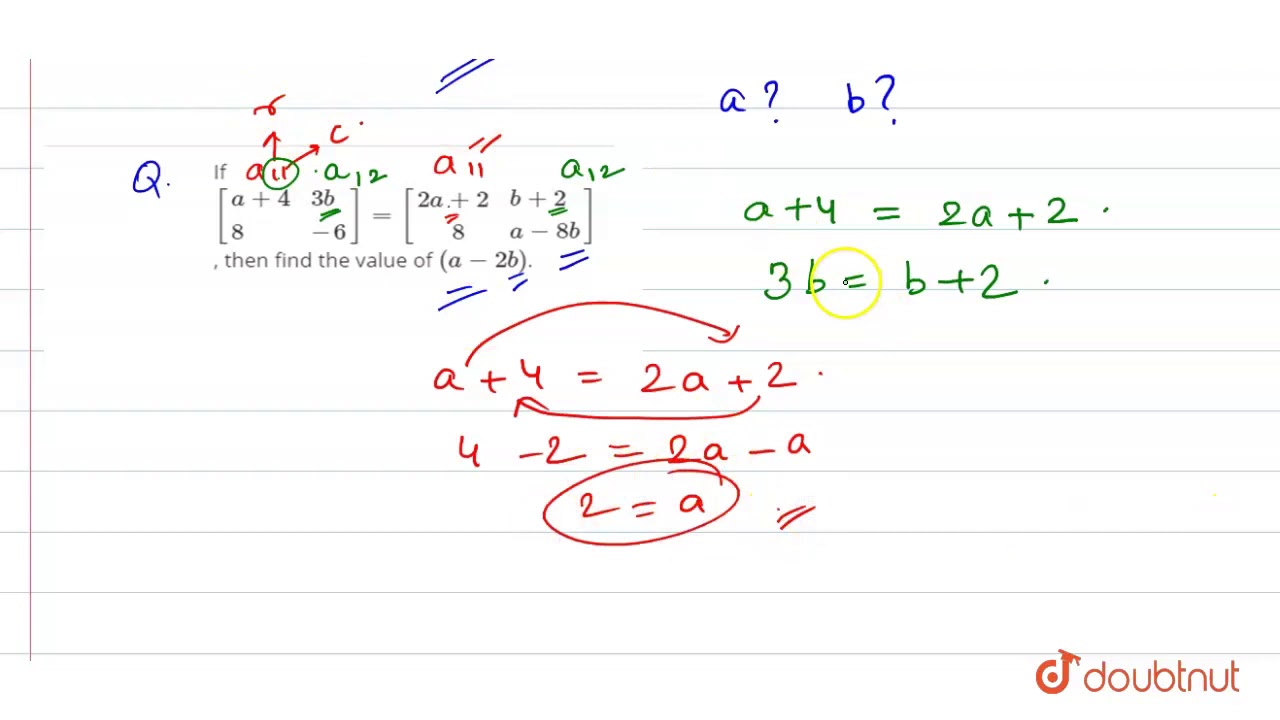 a ? b ?
r
c
Q.
If a11 a12 a11 a12
[a + 4 3b] = [2a + 2 b + 2]
[8 −6] [8 a − 8b]
, then find the value of (a − 2b).
a + 4 = 2a + 2 .
3b = b + 2 .
a + 4 = 2a + 2 .
4 - 2 = 2a - a
2 = a
doubtnut